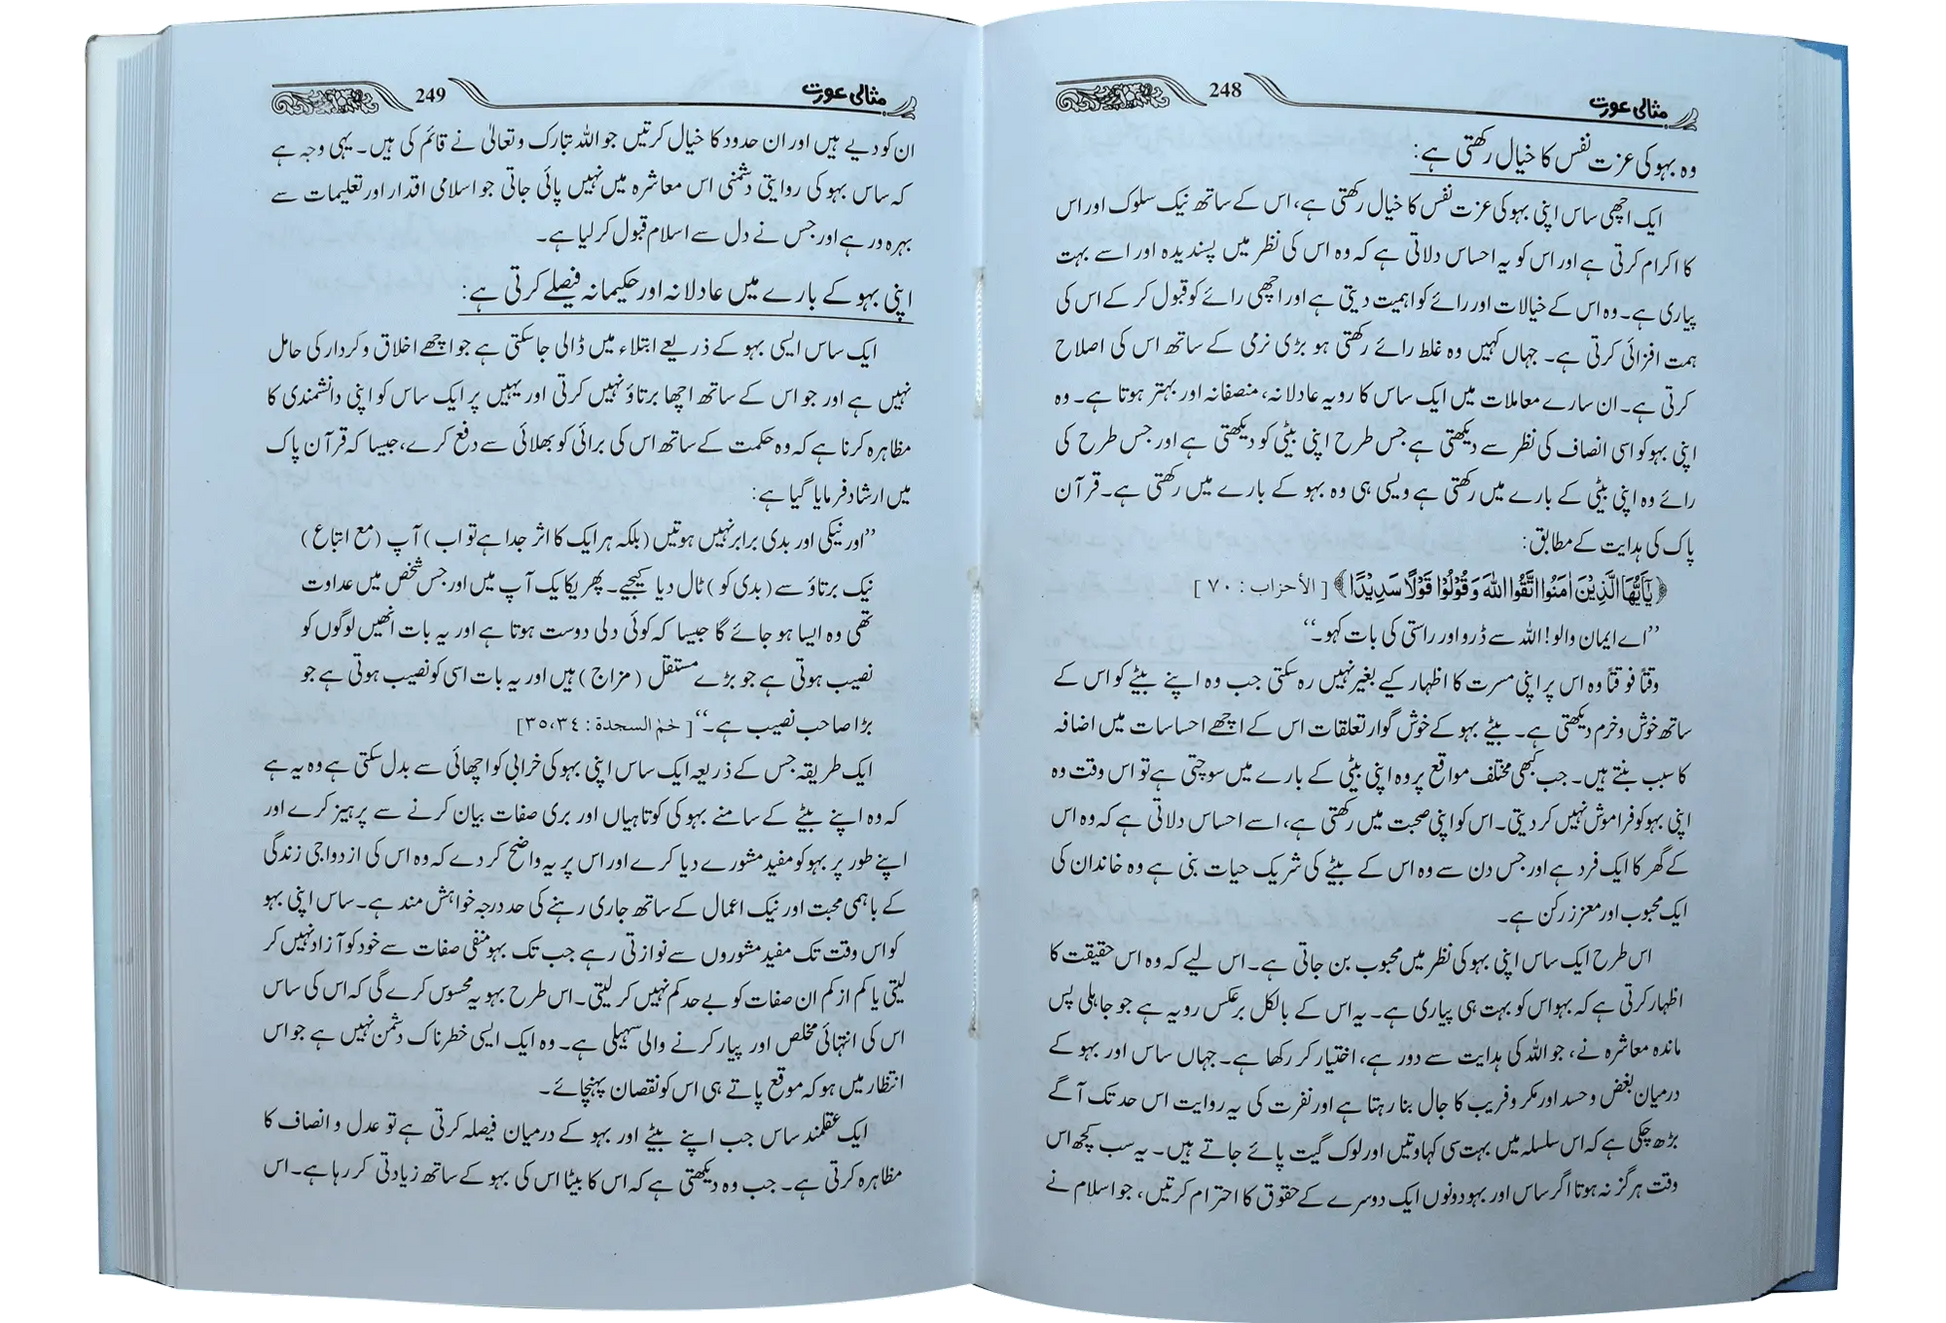 مثالی عورت 248
وہ بہو کی عزت نفس کا خیال رکھتی ہے:
ایک اچھی ساس اپنی بہو کی عزت نفس کا خیال رکھتی ہے، اس کے ساتھ نیک سلوک اور اس
کا اکرام کرتی ہے اور اس کو یہ احساس دلاتی ہے کہ وہ اس کی نظر میں پسندیدہ اور اسے بہت
پیاری ہے۔ وہ اس کے خیالات اور رائے کو اہمیت دیتی ہے اور اچھی رائے کو قبول کر کے اس کی
ہمت افزائی کرتی ہے۔ جہاں کہیں وہ غلط رائے رکھتی ہو بڑی نرمی کے ساتھ اس کی اصلاح
کرتی ہے۔ ان سارے معاملات میں ایک ساس کا رویہ عادلانہ، منصفانہ اور بہتر ہوتا ہے۔ وہ
اپنی بہو کو اسی انصاف کی نظر سے دیکھتی ہے جس طرح اپنی بیٹی کو دیکھتی ہے اور جس طرح کی
رائے وہ اپنی بیٹی کے بارے میں رکھتی ہے ویسی ہی وہ بہو کے بارے میں رکھتی ہے۔ قرآن
پاک کی ہدایت کے مطابق:
﴿يٰٓاَيُّهَا الَّذِيْنَ اٰمَنُوا اتَّقُوا اللّٰهَ وَقُوْلُوْا قَوْلًا سَدِيْدًا﴾ [الأحزاب : ۷۰]
’’اے ایمان والو! اللہ سے ڈرو اور راستی کی بات کہو۔‘‘
وقتاً فوقتاً وہ اس پر اپنی مسرت کا اظہار کیے بغیر نہیں رہ سکتی جب وہ اپنے بیٹے کو اس کے
ساتھ خوش و خرم دیکھتی ہے۔ بیٹے بہو کے خوش گوار تعلقات اس کے اچھے احساسات میں اضافہ
کا سبب بنتے ہیں۔ جب کبھی مختلف مواقع پر وہ اپنی بیٹی کے بارے میں سوچتی ہے تو اس وقت وہ
اپنی بہو کو فراموش نہیں کر دیتی۔ اس کو اپنی صحبت میں رکھتی ہے، اسے احساس دلاتی ہے کہ وہ اس
کے گھر کا ایک فرد ہے اور جس دن سے وہ اس کے بیٹے کی شریک حیات بنی ہے وہ خاندان کی
ایک محبوب اور معزز رکن ہے۔
اس طرح ایک ساس اپنی بہو کی نظر میں محبوب بن جاتی ہے۔ اس لیے کہ وہ اس حقیقت کا
اظہار کرتی ہے کہ بہو اس کو بہت ہی پیاری ہے۔ یہ اس کے بالکل برعکس رویہ ہے جو جاہلی پس
ماندہ معاشرہ نے، جو اللہ کی ہدایت سے دور ہے، اختیار کر رکھا ہے۔ جہاں ساس اور بہو کے
درمیان بغض و حسد اور مکر و فریب کا جال بنا رہتا ہے اور نفرت کی یہ روایت اس حد تک آگے
بڑھ چکی ہے کہ اس سلسلہ میں بہت سی کہاوتیں اور لوک گیت پائے جاتے ہیں۔ یہ سب کچھ اس
وقت ہرگز نہ ہوتا اگر ساس اور بہو دونوں ایک دوسرے کے حقوق کا احترام کرتیں، جو اسلام نے
مثالی عورت 249
ان کو دیے ہیں اور ان حدود کا خیال کرتیں جو اللہ تبارک وتعالیٰ نے قائم کی ہیں۔ یہی وجہ ہے
کہ ساس بہو کی روایتی دشمنی اس معاشرہ میں نہیں پائی جاتی جو اسلامی اقدار اور تعلیمات سے
بہرہ ور ہے اور جس نے دل سے اسلام قبول کر لیا ہے۔
اپنی بہو کے بارے میں عادلانہ اور حکیمانہ فیصلے کرتی ہے:
ایک ساس ایسی بہو کے ذریعے ابتلاء میں ڈالی جاسکتی ہے جو اچھے اخلاق و کردار کی حامل
نہیں ہے اور جو اس کے ساتھ اچھا برتاؤ نہیں کرتی اور یہیں پر ایک ساس کو اپنی دانشمندی کا
مظاہرہ کرنا ہے کہ وہ حکمت کے ساتھ اس کی برائی کو بھلائی سے دفع کرے، جیسا کہ قرآن پاک
میں ارشاد فرمایا گیا ہے:
’’اور نیکی اور بدی برابر نہیں ہوتیں (بلکہ ہر ایک کا اثر جدا ہے تو اب) آپ (مع اتباع)
نیک برتاؤ سے (بدی کو) ٹال دیا کیجیے۔ پھر یکایک آپ میں اور جس شخص میں عداوت
تھی وہ ایسا ہو جائے گا جیسا کہ کوئی دلی دوست ہوتا ہے اور یہ بات انھیں لوگوں کو
نصیب ہوتی ہے جو بڑے مستقل (مزاج) ہیں اور یہ بات اسی کو نصیب ہوتی ہے جو
بڑا صاحب نصیب ہے۔‘‘ [حٰمٓ السجدة : ۳۵،۳٤]
ایک طریقہ جس کے ذریعہ ایک ساس اپنی بہو کی خرابی کو اچھائی سے بدل سکتی ہے وہ یہ ہے
کہ وہ اپنے بیٹے کے سامنے بہو کی کوتاہیاں اور بری صفات بیان کرنے سے پرہیز کرے اور
اپنے طور پر بہو کو مفید مشورے دیا کرے اور اس پر یہ واضح کر دے کہ وہ اس کی ازدواجی زندگی
کے باہمی محبت اور نیک اعمال کے ساتھ جاری رہنے کی حد درجہ خواہش مند ہے۔ ساس اپنی بہو
کو اس وقت تک مفید مشوروں سے نوازتی رہے جب تک بہو منفی صفات سے خود کو آزاد نہیں کر
لیتی یا کم از کم ان صفات کو بے حد کم نہیں کر لیتی۔ اس طرح بہو یہ محسوس کرے گی کہ اس کی ساس
اس کی انتہائی مخلص اور پیار کرنے والی سہیلی ہے۔ وہ ایک ایسی خطرناک دشمن نہیں ہے جو اس
انتظار میں ہو کہ موقع پاتے ہی اس کو نقصان پہنچائے۔
ایک عقلمند ساس جب اپنے بیٹے اور بہو کے درمیان فیصلہ کرتی ہے تو عدل و انصاف کا
مظاہرہ کرتی ہے۔ جب وہ دیکھتی ہے کہ اس کا بیٹا اس کی بہو کے ساتھ زیادتی کر رہا ہے۔ اس